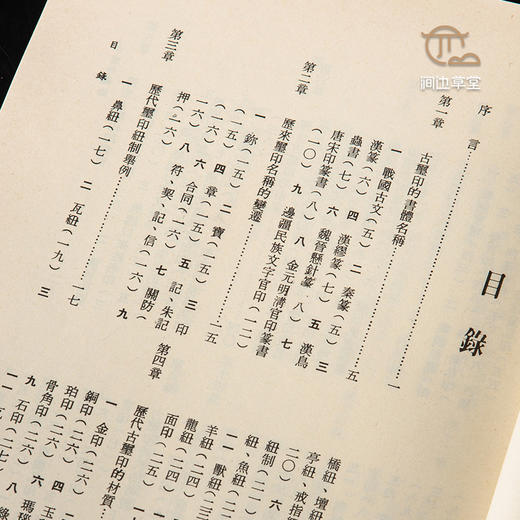 澗边草堂
目錄
序言……一
第一章 古璽印的書體名稱……五
一 戰國古文(五) 二 秦篆(五) 三
漢篆(六) 四 漢繆篆(七) 五 漢鳥
蟲書(七) 六 魏晉懸針篆(八) 七
唐宋印篆書(八) 八 金元明清官印篆書
(一〇) 九 邊疆民族文字官印(一二)
第二章 歷來璽印名稱的變遷……一五
一 鉨(一五) 二 寶(一五) 三 印
(一五) 四 章(一五) 五 記、朱記
(一六) 六 合同(一六) 七 關防
(一六) 八 符、契、記、信(一六) 九
押(一六)
第三章 歷代璽印紐制舉例……一七
一 鼻紐(一七) 二 瓦紐(一九) 三
目錄
橋紐、壇紐
亭紐、戒指
二〇) 六
紐制(
紐、魚紐(
一一 獸紐(
羊紐(二三
龍紐(二四
面印(二五
第四章 歷代古璽印的材質…
一 金印(二六)
銅印(二六) 四 玉
珀印(二六)
骨角印(二六)
九 石印(二七)